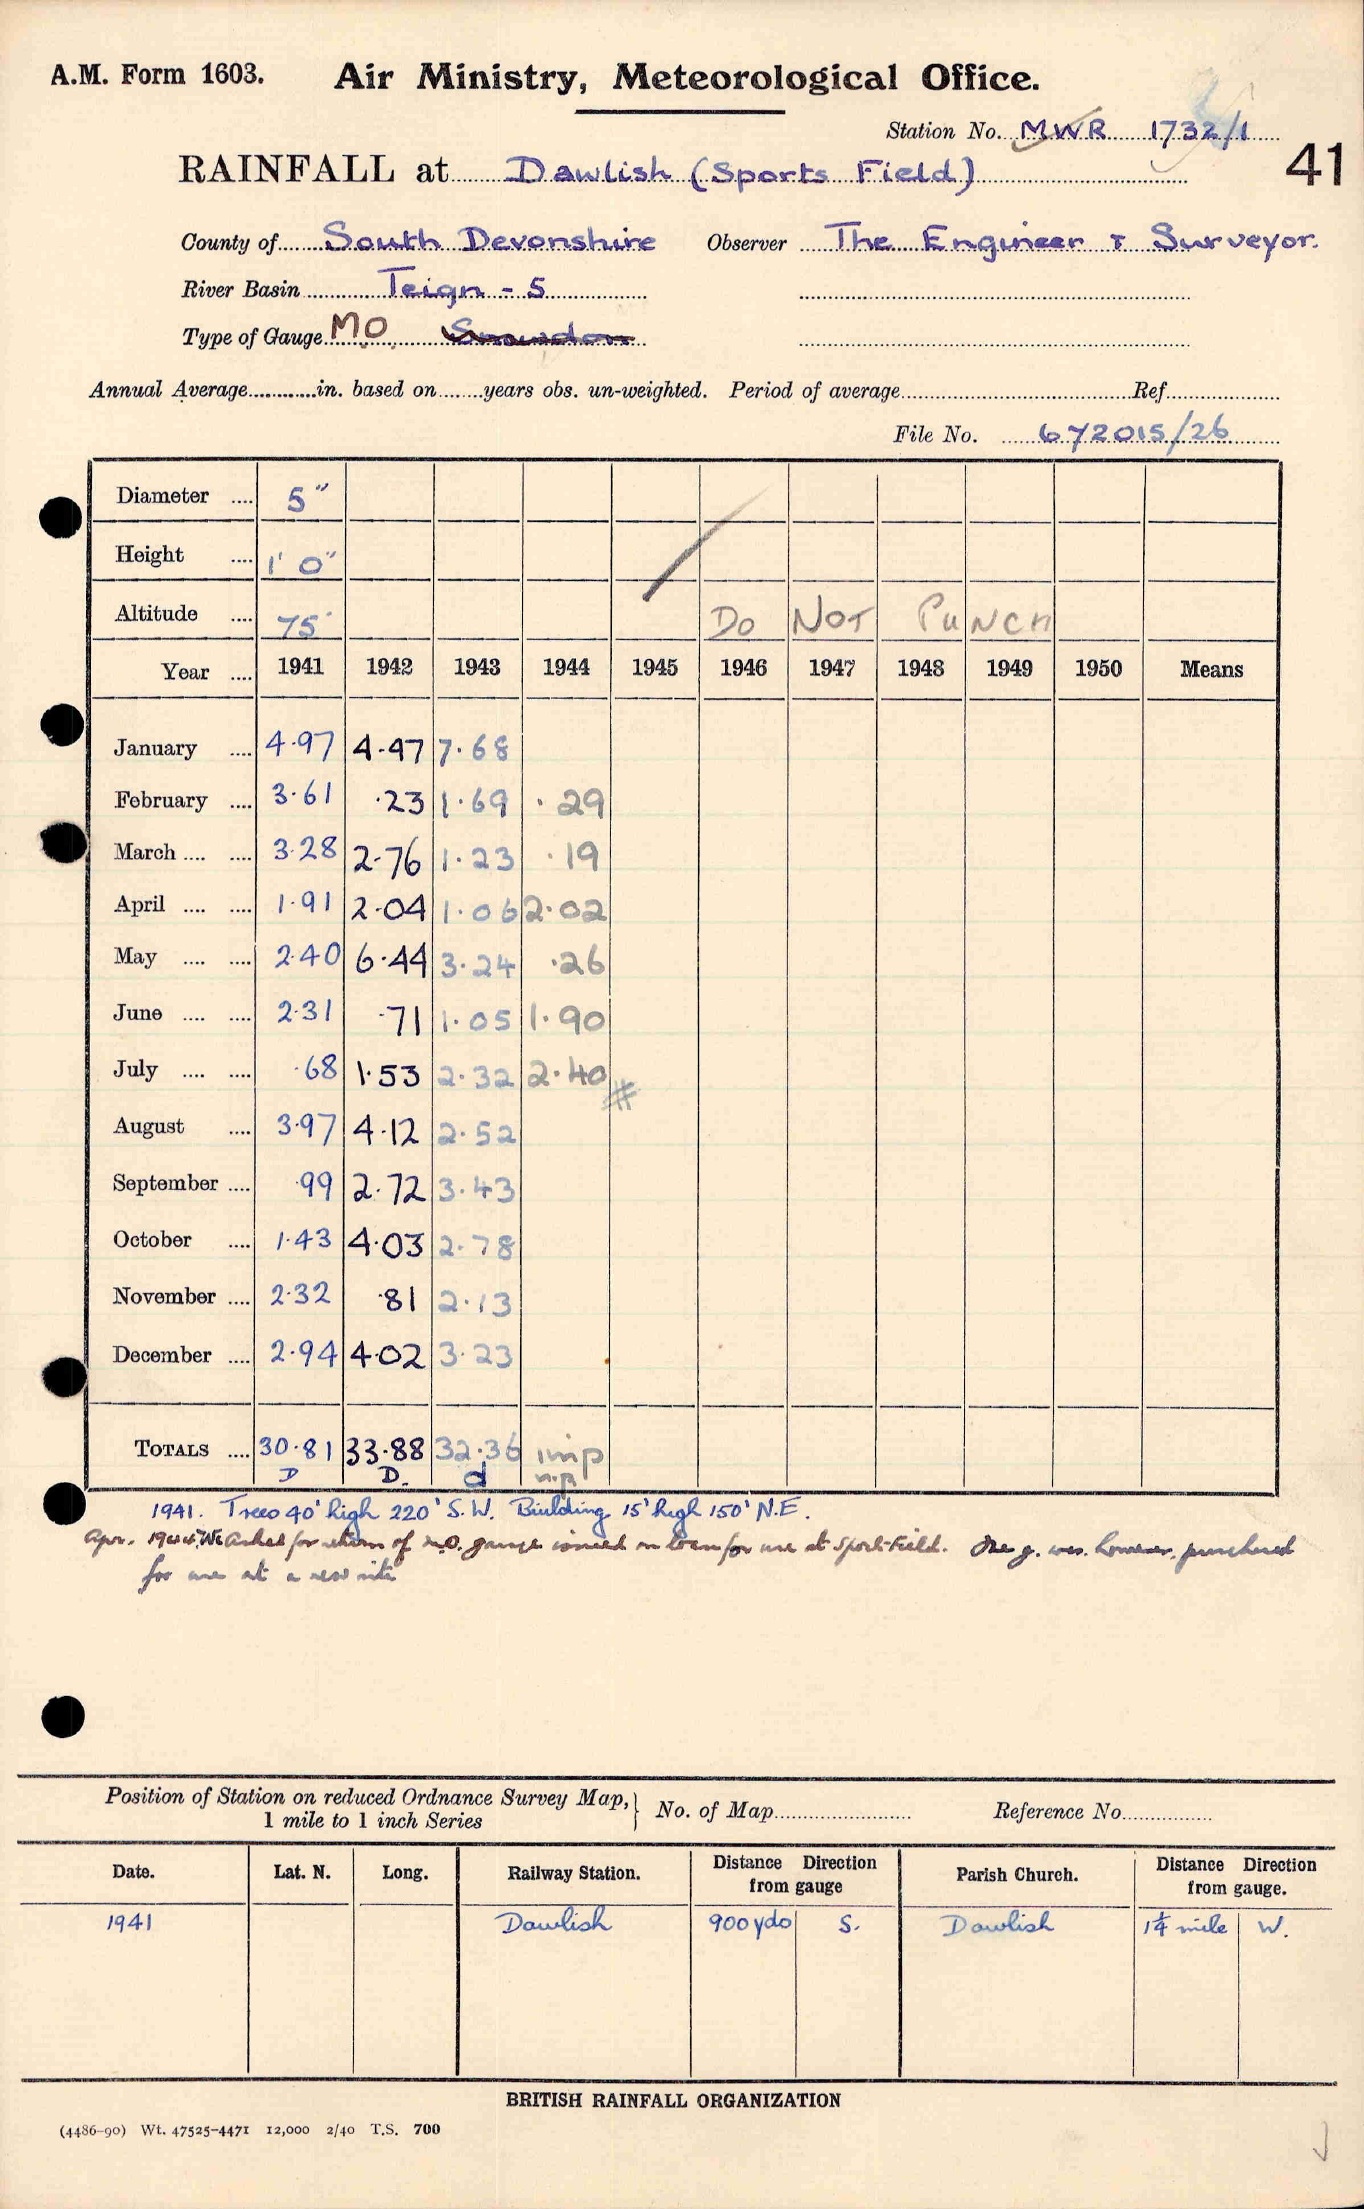 A.M. Form 1603. Air Ministry, Meteorological Office.
Station No. MWR 1732/1
41
RAINFALL at Dawlish (Sports Field)
County of South Devonshire Observer The Engineer & Surveyor.
River Basin Teign - 5
Type of Gauge M.O. Snowdon
Annual Average............in. based on.......years obs. un-weighted. Period of average........ Ref........
File No. 672015/26
Diameter .... 5"
Height .... 1' 0"
Altitude .... 75' Do NOT PUNCH
Year .... 1941 1942 1943 1944 1945 1946 1947 1948 1949 1950 Means
January .... 4.97 4.47 7.68
February .... 3.61 .23 1.69 .29
March .... .... 3.28 2.76 1.23 .19
April .... .... 1.91 2.04 1.06 2.02
May .... .... 2.40 6.44 3.24 .26
June .... .... 2.31 .71 1.05 1.90
July .... .... .68 1.53 2.32 2.40 #
August .... 3.97 4.12 2.52
September .... .99 2.72 3.43
October .... 1.43 4.03 2.78
November .... 2.32 .81 2.13
December .... 2.94 4.02 3.23
TOTALS .... 30.81 33.88 32.36 imp
D D. d n.p
1941. Trees 40' high 220' S.W. Building 15' high 150' N.E.
Apr. 1944. We asked for return of M.O. gauge issued on loan for use at Sports Field. The g. was however, purchased
for use at a new site
Position of Station on reduced Ordnance Survey Map, } No. of Map........ Reference No........
1 mile to 1 inch Series
Date. Lat. N. Long. Railway Station. Distance Direction from gauge Parish Church. Distance Direction from gauge.
1941 Dawlish 900 yds S. Dawlish 1¼ mile W.
BRITISH RAINFALL ORGANIZATION
(4486-90) Wt. 47525-4471 12,000 2/40 T.S. 700